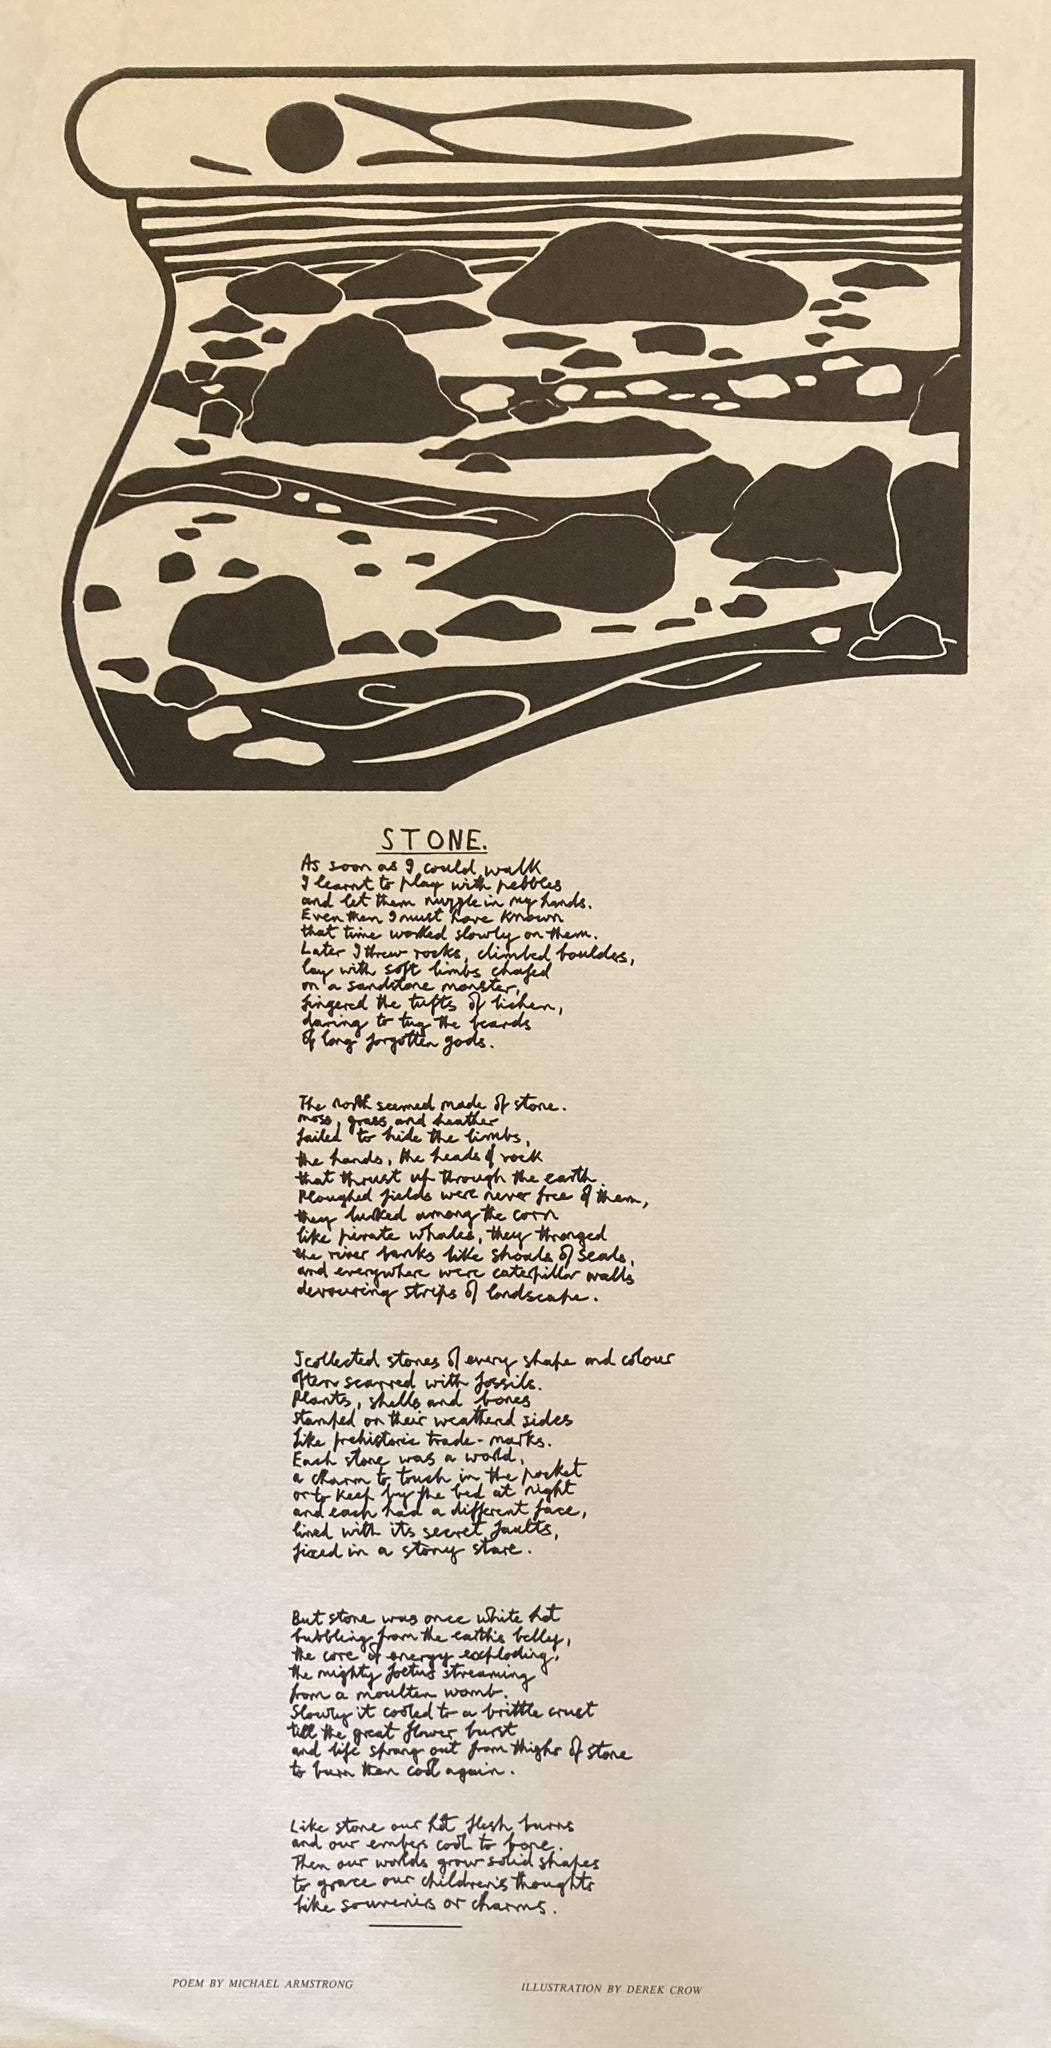 STONE.
As soon as I could walk
I learnt to play with pebbles
and let them nuzzle in my hands.
Even then I must have known
that time worked slowly on them.
Later I threw rocks, climbed boulders,
lay with soft limbs chafed
on a sandstone monster,
fingered the tufts of lichen,
daring to tug the beards
of long forgotten gods.
The north seemed made of stone.
moss, grass and heather
failed to hide the limbs,
the hands, the heads of rock
that thrust up through the earth.
Ploughed fields were never free of them,
they lurked among the corn
like pirate whales, they thronged
the river banks like shoals of seals,
and everywhere were caterpillar walls
devouring strips of landscape.
I collected stones of every shape and colour
often scarred with fossils.
Plants, shells and bones
stamped on their weatherd sides
like prehistoric trade-marks.
Each stone was a world,
a charm to touch in the pocket
or to keep by the bed at night
and each had a different face,
lined with its secret faults,
fixed in a stony stare.
But stone was once white hot
bubbling from the earth's belly,
the core of energy exploding,
the mighty foetus streaming
from a moulten womb.
Slowly it cooled to a brittle crust
till the great flower burst
and life sprang out from thighs of stone
to burn then cool again.
Like stone our hot flesh burns
and our embers cool to bone.
Then our worlds grow solid shapes
to grace our children's thoughts
like souvenirs or charms.
POEM BY MICHAEL ARMSTRONG
ILLUSTRATION BY DEREK CROW